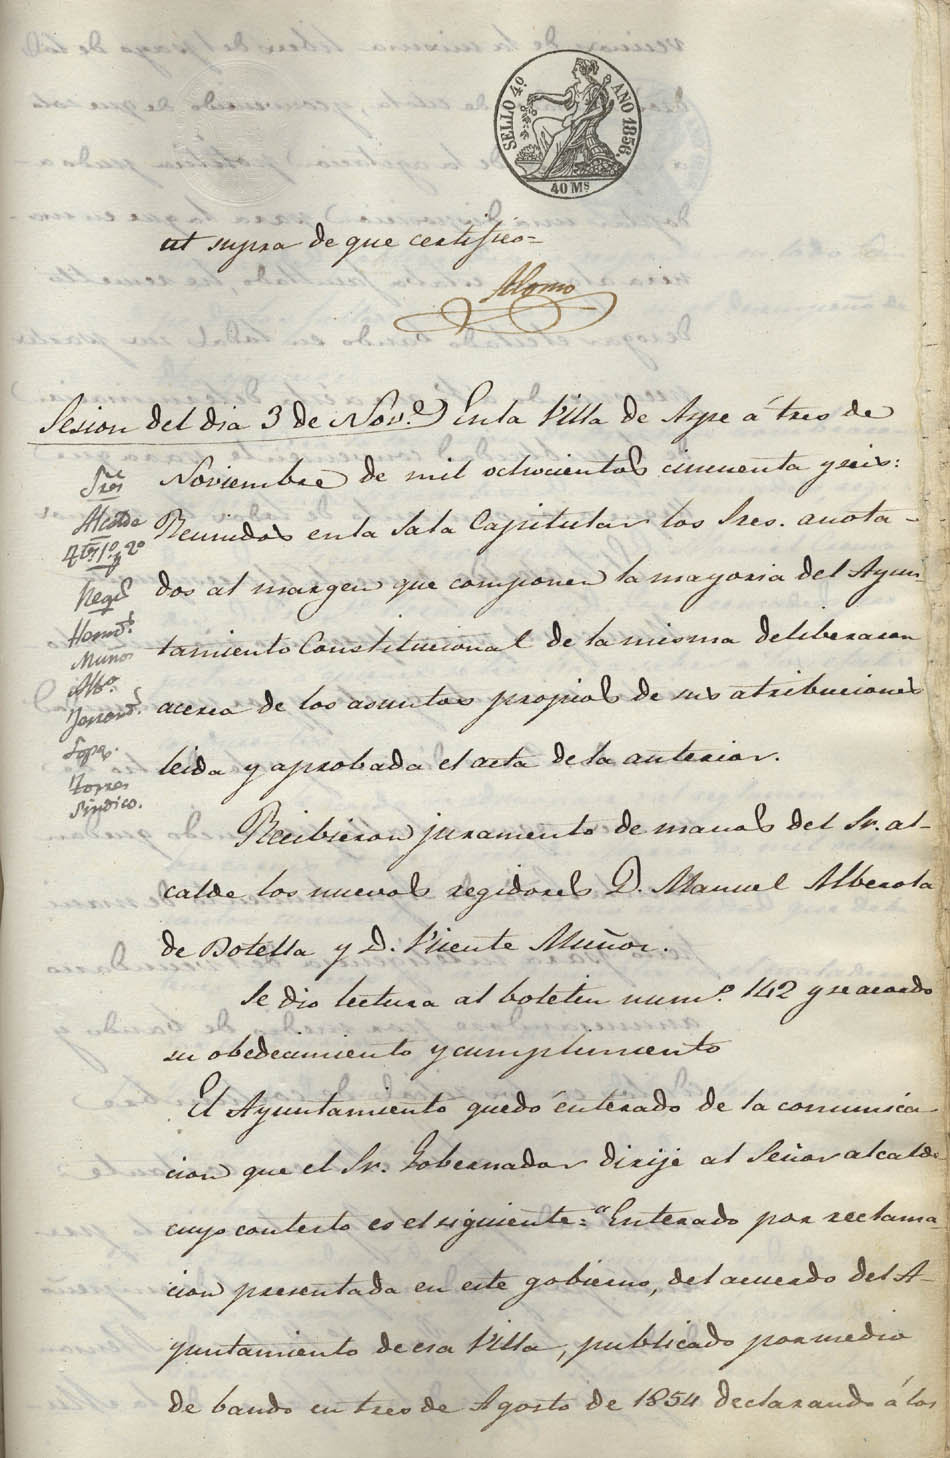 SELLO 4º. AÑO 1856.
40 Ms
ut supra de que certifico=
Alonso
Sesion del dia 3 de Nov.e En la Villa de Aspe á tres de
Noviembre de mil ochocientos cincuenta y seis:
Reunidos en la Sala Capitular los Sres. anota-
dos al margen que componen la mayoria del Ayun-
tamiento Constitucional de la misma deliberaron
acerca de los asuntos propios de sus atribuciones
leida y aprobada el acta de la anterior.
Sres
Alcalde
Ttes 1º y 2º
Regs
Muños
Lopes.
Torres
Sindico.
Recibieron juramento de manos del Sr. al-
calde los nuevos regidores D. Manuel Alberola
de Botella y D. Vicente Muños.
Se dio lectura al boletin num.º 142 y se acordo
su obedecimiento y cumplimiento
El Ayuntamiento quedó enterado de la comunica
cion que el Sr. Gobernador dirije al Señor alcalde
cuyo contesto es el siguiente: "Enterado por reclama-
cion presentada en este gobierno, del acuerdo del A-
yuntamiento de esa Villa, publicado por medio
de bando en tres de Agosto de 1854 declarando á los